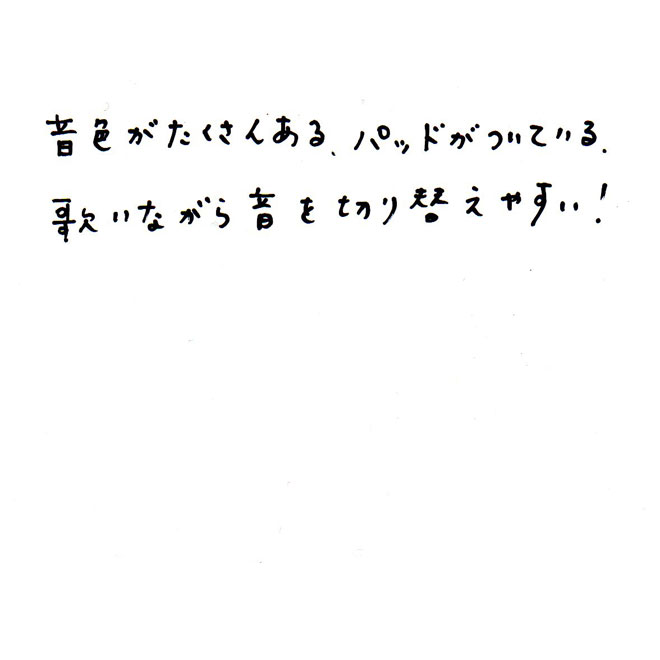 音色がたくさんある、パッドがついている。
歌いながら音を切り替えやすい!